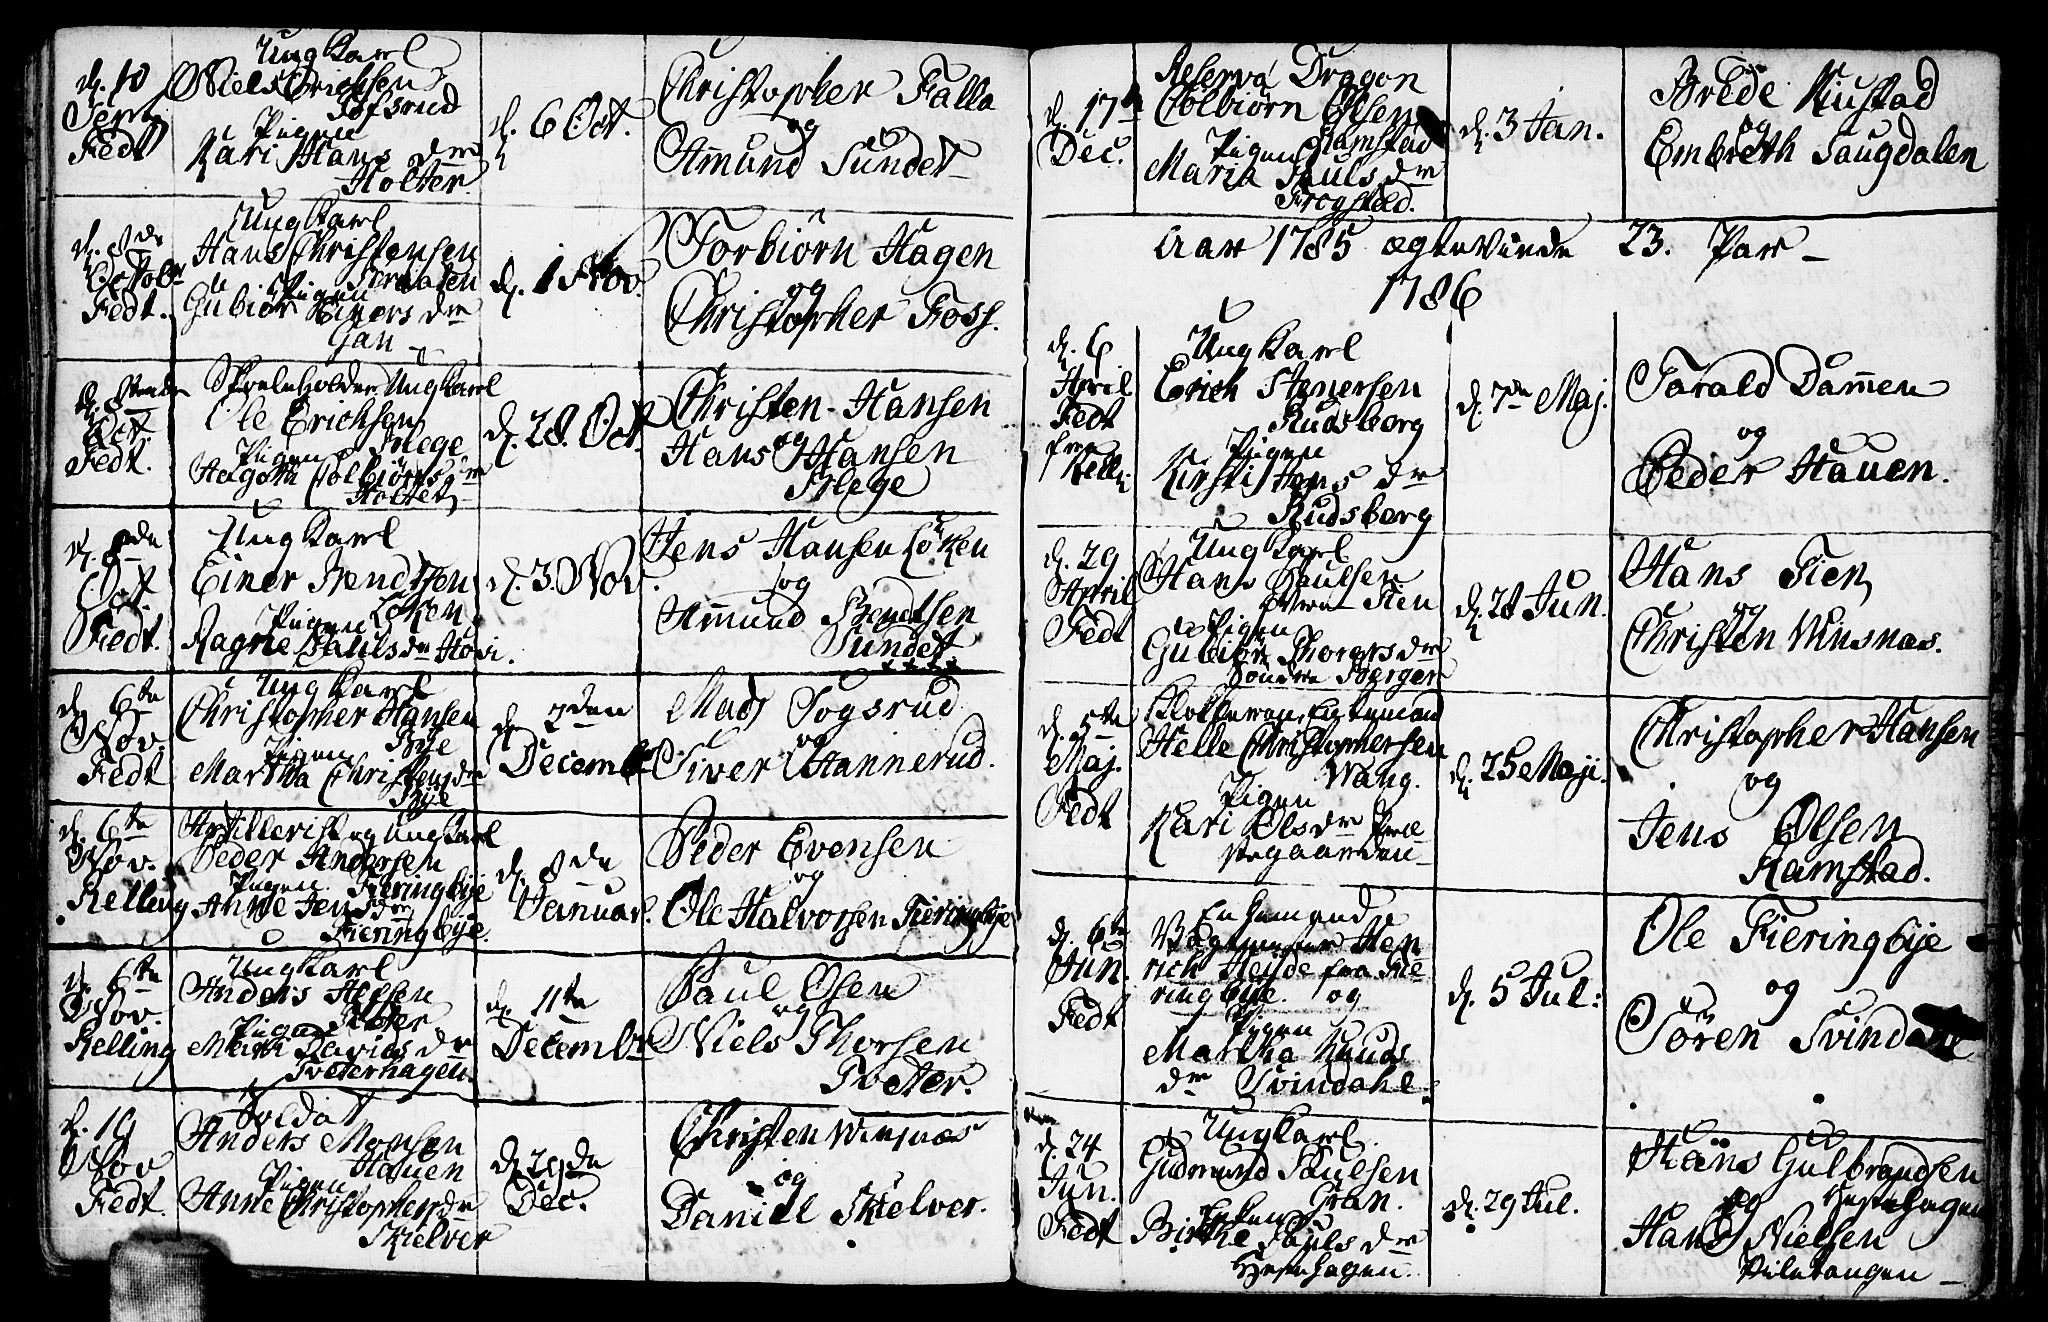 d. 10
Sept.
Fedt
Ung Karl
Niels Erichsen
Tofsrud
Pigen
Kari Hans dr
Holter.
d. 6 Oct.
Christopher Falla
og
Amund Sundet
d. 8de
Octobr
Fedt.
Ung Karl
Hans Christensen
Pigen
Gubiør Einers dr
Gan
d. 1 Nov.
Torbiørn Hagen
og
Christopher Foss.
d. 8
Oct.
Fedt.
Ungkarl
Ole Erichsen
Hege
Pigen
Colbiørns dr
Holter
d. 28. Oct.
Christen Hansen
og
Hans Hansen
Hege
d. 8de
Oct
Fedt.
Ung Karl
Einer Bendtsen
Løken
Pigen
Ragne Pauls dr Hovi.
d. 3. Nov.
Jens Hansen Løken
og
Amund Bendtsen
Sundet
d. 6te
Nov.
Fedt
Ung Karl
Christopher Hansen
Bye
Pigen
Martha Christens dr
Bye
d. 2den
Decemb
Mads Sogsrud
og
Siver Hannerud.
d. 6te
Nov.
Kelling
Artillerist og Ung Karl
Peder Andersen
Fieringbye
Pigen
Anne Jens dr
Fieringbye.
d. 8de
Januar.
Peder Evensen
og
Ole Halvorsen Fieringbye
d. 6te
Nov.
Kelling
Ung Karl
Anders
Pigen
Davids dr
Tveterhagen.
d. 11te
Decembr
Paul Olsen
og
Niels Thorsen
Tveter.
d. 19
Nov
Fedt.
Soldat
Anders Monsen
Hauen
Pigen
Anne Christophers dr
Skielver
d. 29de
Dec.
Christen Winsnæs
og
Daniel Skielver.
d. 17de
Dec.
Reserva Dragon
Colbiørn Olsen
Ramstad
Pigen
Maria Pauls dr
Frogstad.
d. 3 Jan.
Brede Riustad
og
Embreth Saugdalen
Aar 1785 ægteviede 23. Par
1786
d. 6
April
Fedt
fra
Kell:
Ung Karl
Erich Stenersen
Rudsberg
Pigen
Kirsti Hans dr
Rudsberg
d. 7de Maj.
Tarald Damen
og
Peder Hauen.
d. 29
April
Fedt
Ung Karl
Hans Paulsen
Fien
Pigen
Gubiør Thorers dr
Søndre Berger
d. 28 Jun.
Hans Fien
og
Christen Winsnæs.
d. 5te
Maj.
Fedt
Klokkeren, Enkemand
Helle Christophersen
Wang.
Pigen
Kari Ols dr Præ
stegaarden
d. 25 Maji.
Christopher Hansen
og
Jens Olsen
Ramstad.
d. 6te
Jun.
Fedt
Enkemand
Vagtmester Hen
rich Heyde fra Fie
ringbye. og
Pigen
Martha Knuds
dr Svindahl.
d. 5 Jul:
Ole Fieringbye
og
Søren Svindal
d. 24
Jun.
Fedt
Ungkarl.
Gudmund Paulsen
Gran.
Enken
Birthe Pauls dr
Hestehagen.
d. 29 Jul.
Hans Gulbrandsen
og Hestehagen
Hans Nielsen